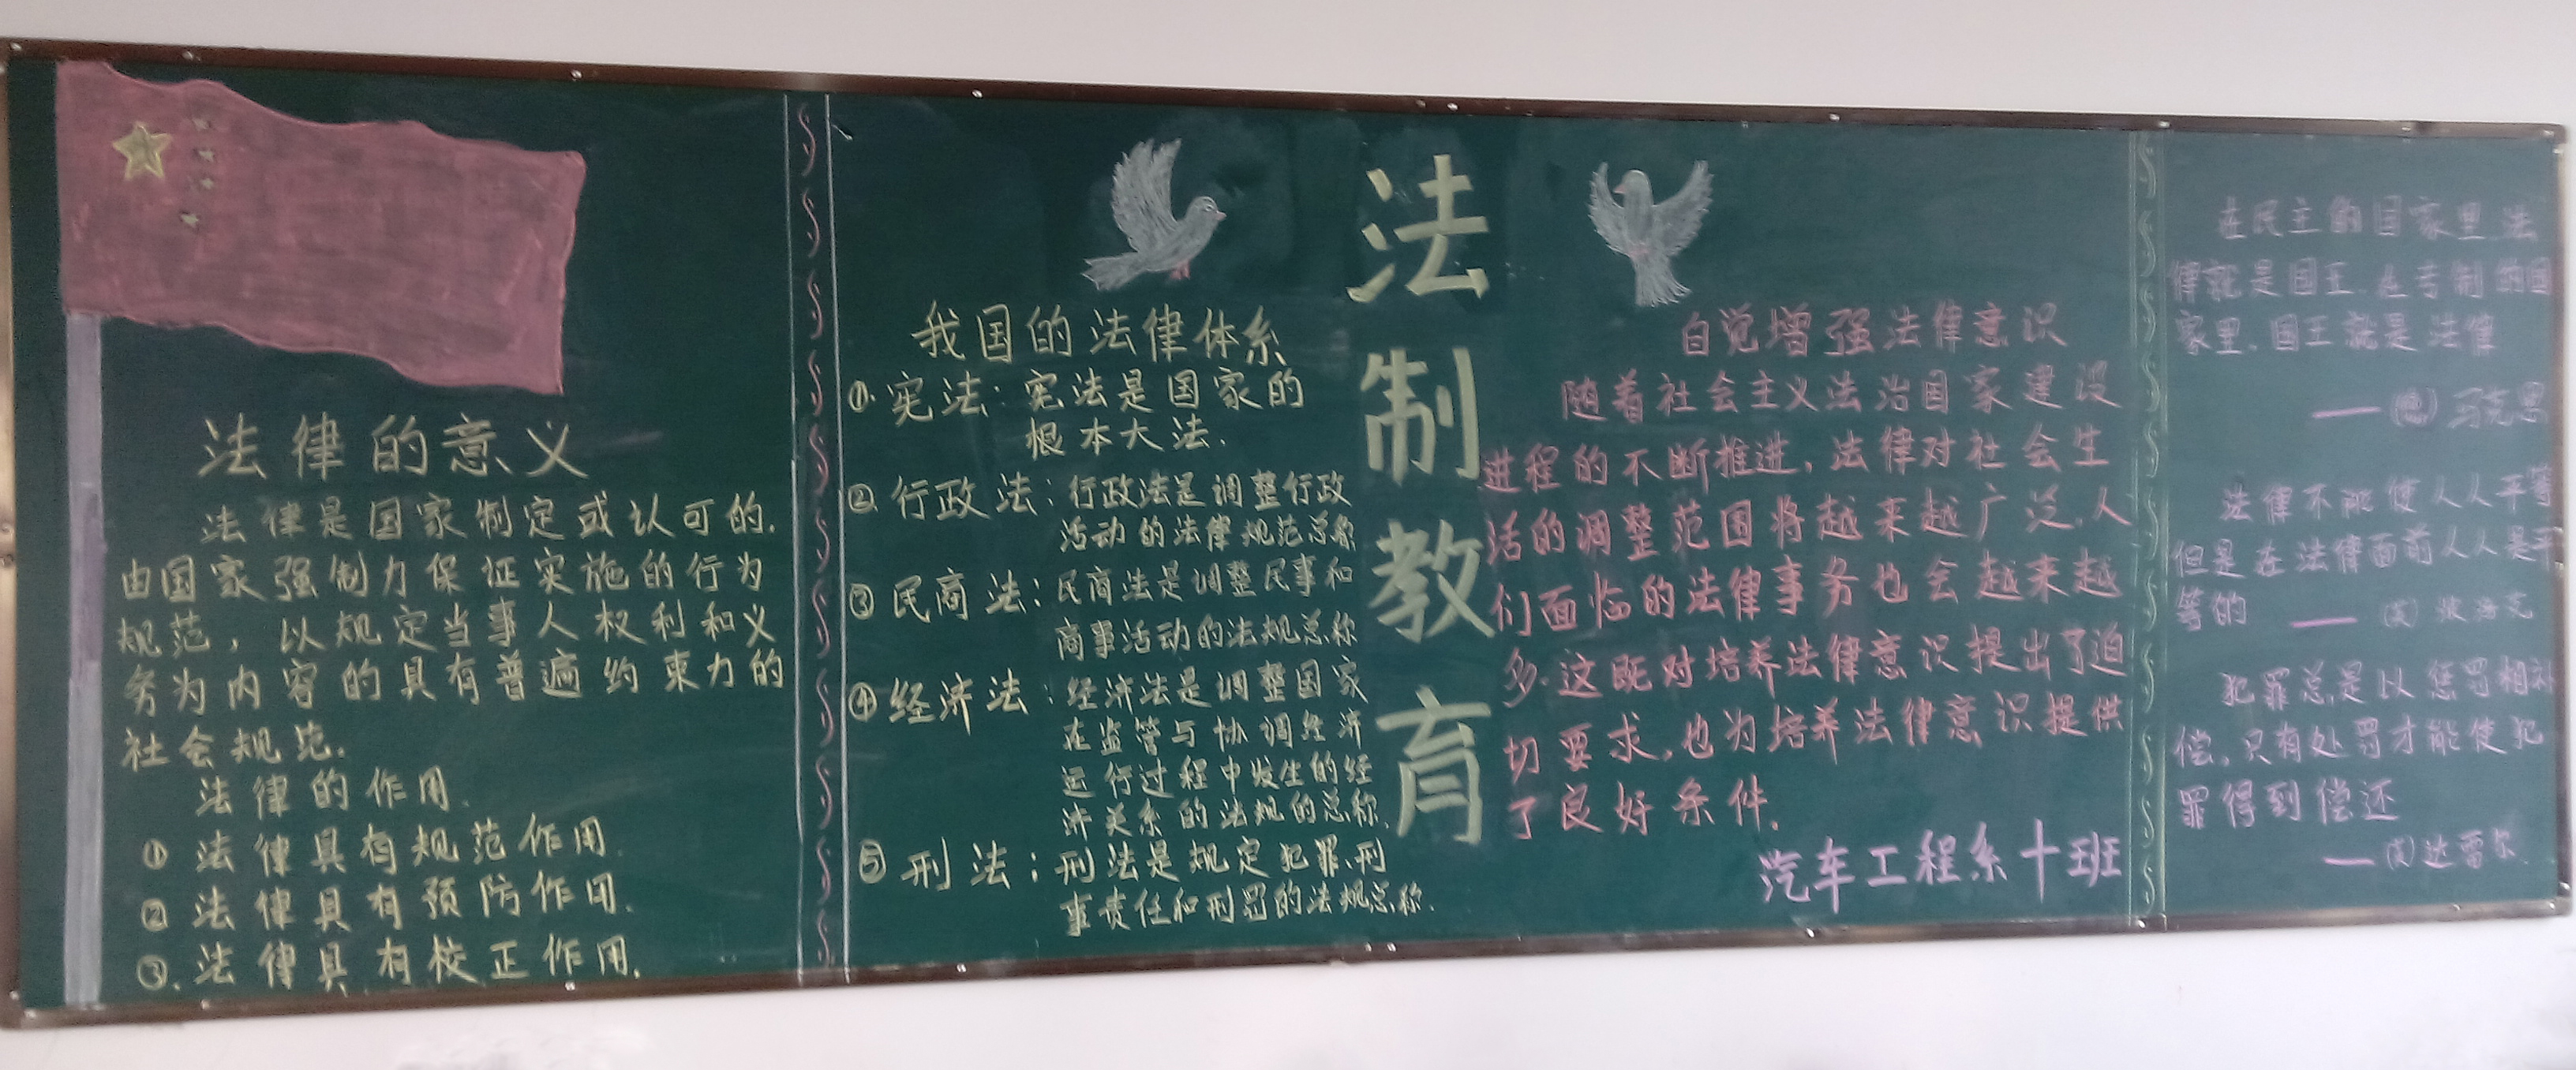 法律的意义
法律是国家制定或认可的.
由国家强制力保证实施的行为
规范，以规定当事人权利和义
务为内容的具有普遍约束力的
社会规范.
法律的作用.
① 法律具有规范作用.
② 法律具有预防作用.
③. 法律具有校正作用.
我国的法律体系
①. 宪法: 宪法是国家的
根本大法.
②. 行政法: 行政法是调整行政
活动的法律规范总称
③ 民商法: 民商法是调整民事和
商事活动的法规总称
④ 经济法: 经济法是调整国家
在监管与协调经济
运行过程中发生的经
济关系的法规的总称.
⑤ 刑法: 刑法是规定犯罪、刑
事责任和刑罚的法规总称.
法
制
教
育
自觉增强法律意识
随着社会主义法治国家建设
进程的不断推进, 法律对社会生
活的调整范围将越来越广泛.人
们面临的法律事务也会越来越
多.这既对培养法律意识提出了迫
切要求,也为培养法律意识提供
了良好条件.
汽车工程系十班
在民主的国家里法
律就是国王.在专制的国
家里.国王就是法律
—— 马克思
法律不能使人人平等
但是在法律面前人人是平
等的 —— (英) 波洛克
犯罪总是以惩罚相补
偿,只有处罚才能使犯
罪得到偿还
—— (英) 达雷尔